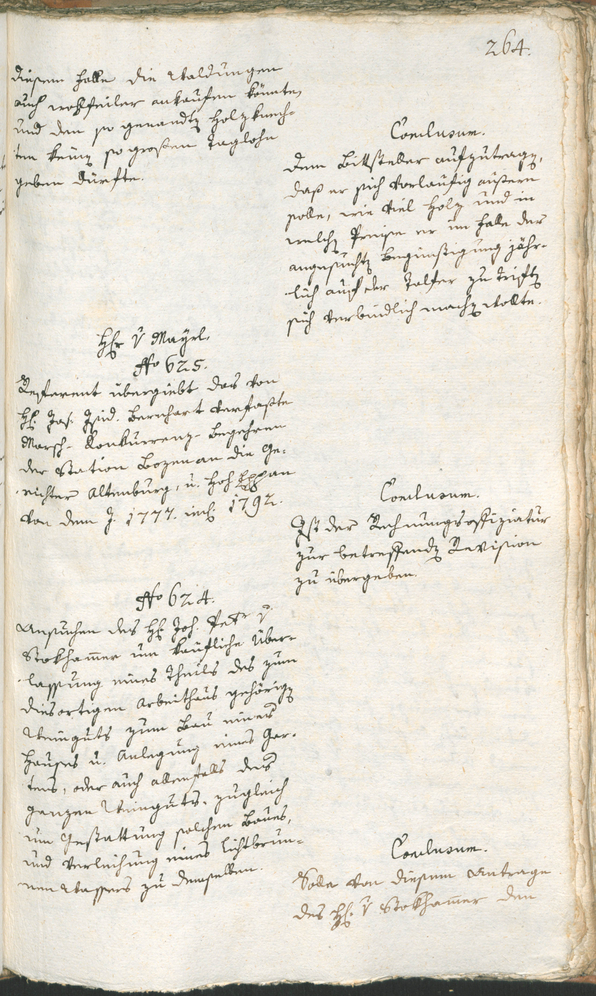 264.
diesem Falle die Waldungen
auch wohlfeiler ankaufen könnte,
und den so genandten Holzknech-
ten keinen so großen Taglohn
geben dürfte.
Conclusum.
Dem Bittsteller aufzutragen,
daß er sich vorläufig äußern
solle, wie viel Holz und in
welchen Preise er im Falle der
angesuchten Begünstigung jähr-
lich auf der Talfer zu triften
sich verbindlich machen wollte.
Hr v Mayrl.
No 625.
Referent übergiebt das von
H. Jos. Isid. Bernhart verfaßte
Marsch-Konkurrenz-Begehren
der Station Bozen an die Ge-
richter Altenburg, u. Hoh Eppan
von dem J. 1777. incl. 1792.
Conclusum.
Ist der Rechnungsoffiziatur
zur betreffenden Revision
zu übergeben.
No 624.
Ansuchen des H. Joh. Pet. v
Stokhamer um käufliche Über-
lassung eines Theils des zum
diesortigen Arbeithaus gehörigen
Weinguts zum Bau eines
Hauses u. Anlegung eines Gar-
tens, oder auch allenfalls des
ganzen Weinguts, zugleich
um Gestattung solchen Baues,
und Verleihung eines Lichtbrun-
nen Wassers zu demselben.
Conclusum.
Solle von diesem Antrage
des H. v Stokhamer den